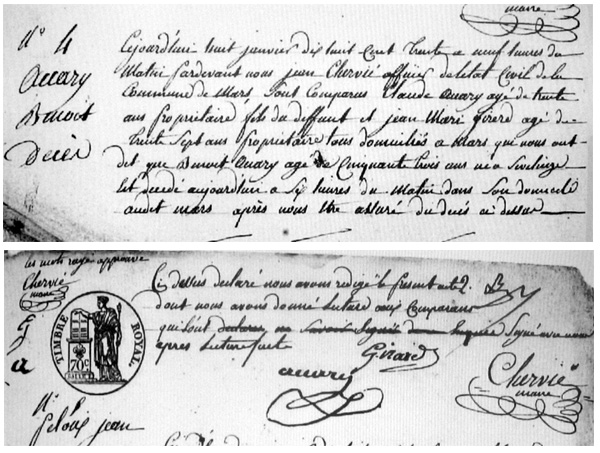 maire
N° 4
Auary
Benoit
Décès
Cejourdhui huit janvier dix huit Cent Trente a neuf heures du
Matin pardevant nous jean Chervié officier de letat Civil de la
Commune de Mars Sont Comparus Claude Auary agé de trente
ans Propriétaire fils du deffunt et jean Marie girard agé de
Trente Sept ans Propriétaire tous domiciliés a Mars qui nous ont
dit que Benoit Auary agé de Cinquante trois ans né a Sevelinge
Est décédé aujourdhui a Six heures du Matin dans Son domicile
audit mars après nous être assuré du décès ci dessus
les mots rayés approuvé
Chervié
maire
Ci dessus declaré nous avons redigé le present acte
dont nous avons donné Lecture aux Comparans
qui ont declarés Signé avec nous
apres Lecture faite
TIMBRE ROYAL
70c
Girard
auary
Chervié
maire
N°
jean